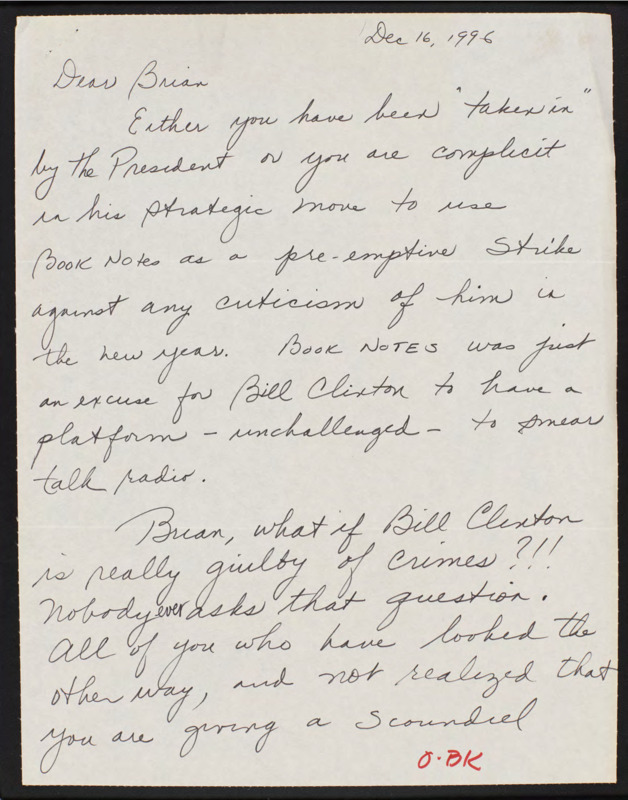 Dec 16, 1996
Dear Brian
Either you have been "taken in"
by the President or you are complicit
in his strategic move to use
Book Notes as a pre-emptive Strike
against any criticism of him in
the new year. Book Notes was just
an excuse for Bill Clinton to have a
platform - unchallenged - to smear
talk radio.
Brian, what if Bill Clinton
is really guilty of crimes?!!!
Nobody ever asks that question.
All of you who have looked the
other way, and not realized that
you are giving a scoundrel
O-BK